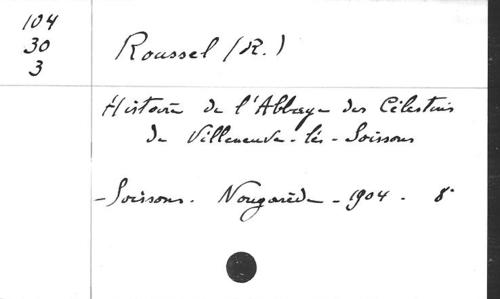 104
30
3
Roussel (R.)
Histoire de l'Abbaye des Célestins
de Villeneuve-lès-Soissons
- Soissons. Nougarède - 1904 - 8°